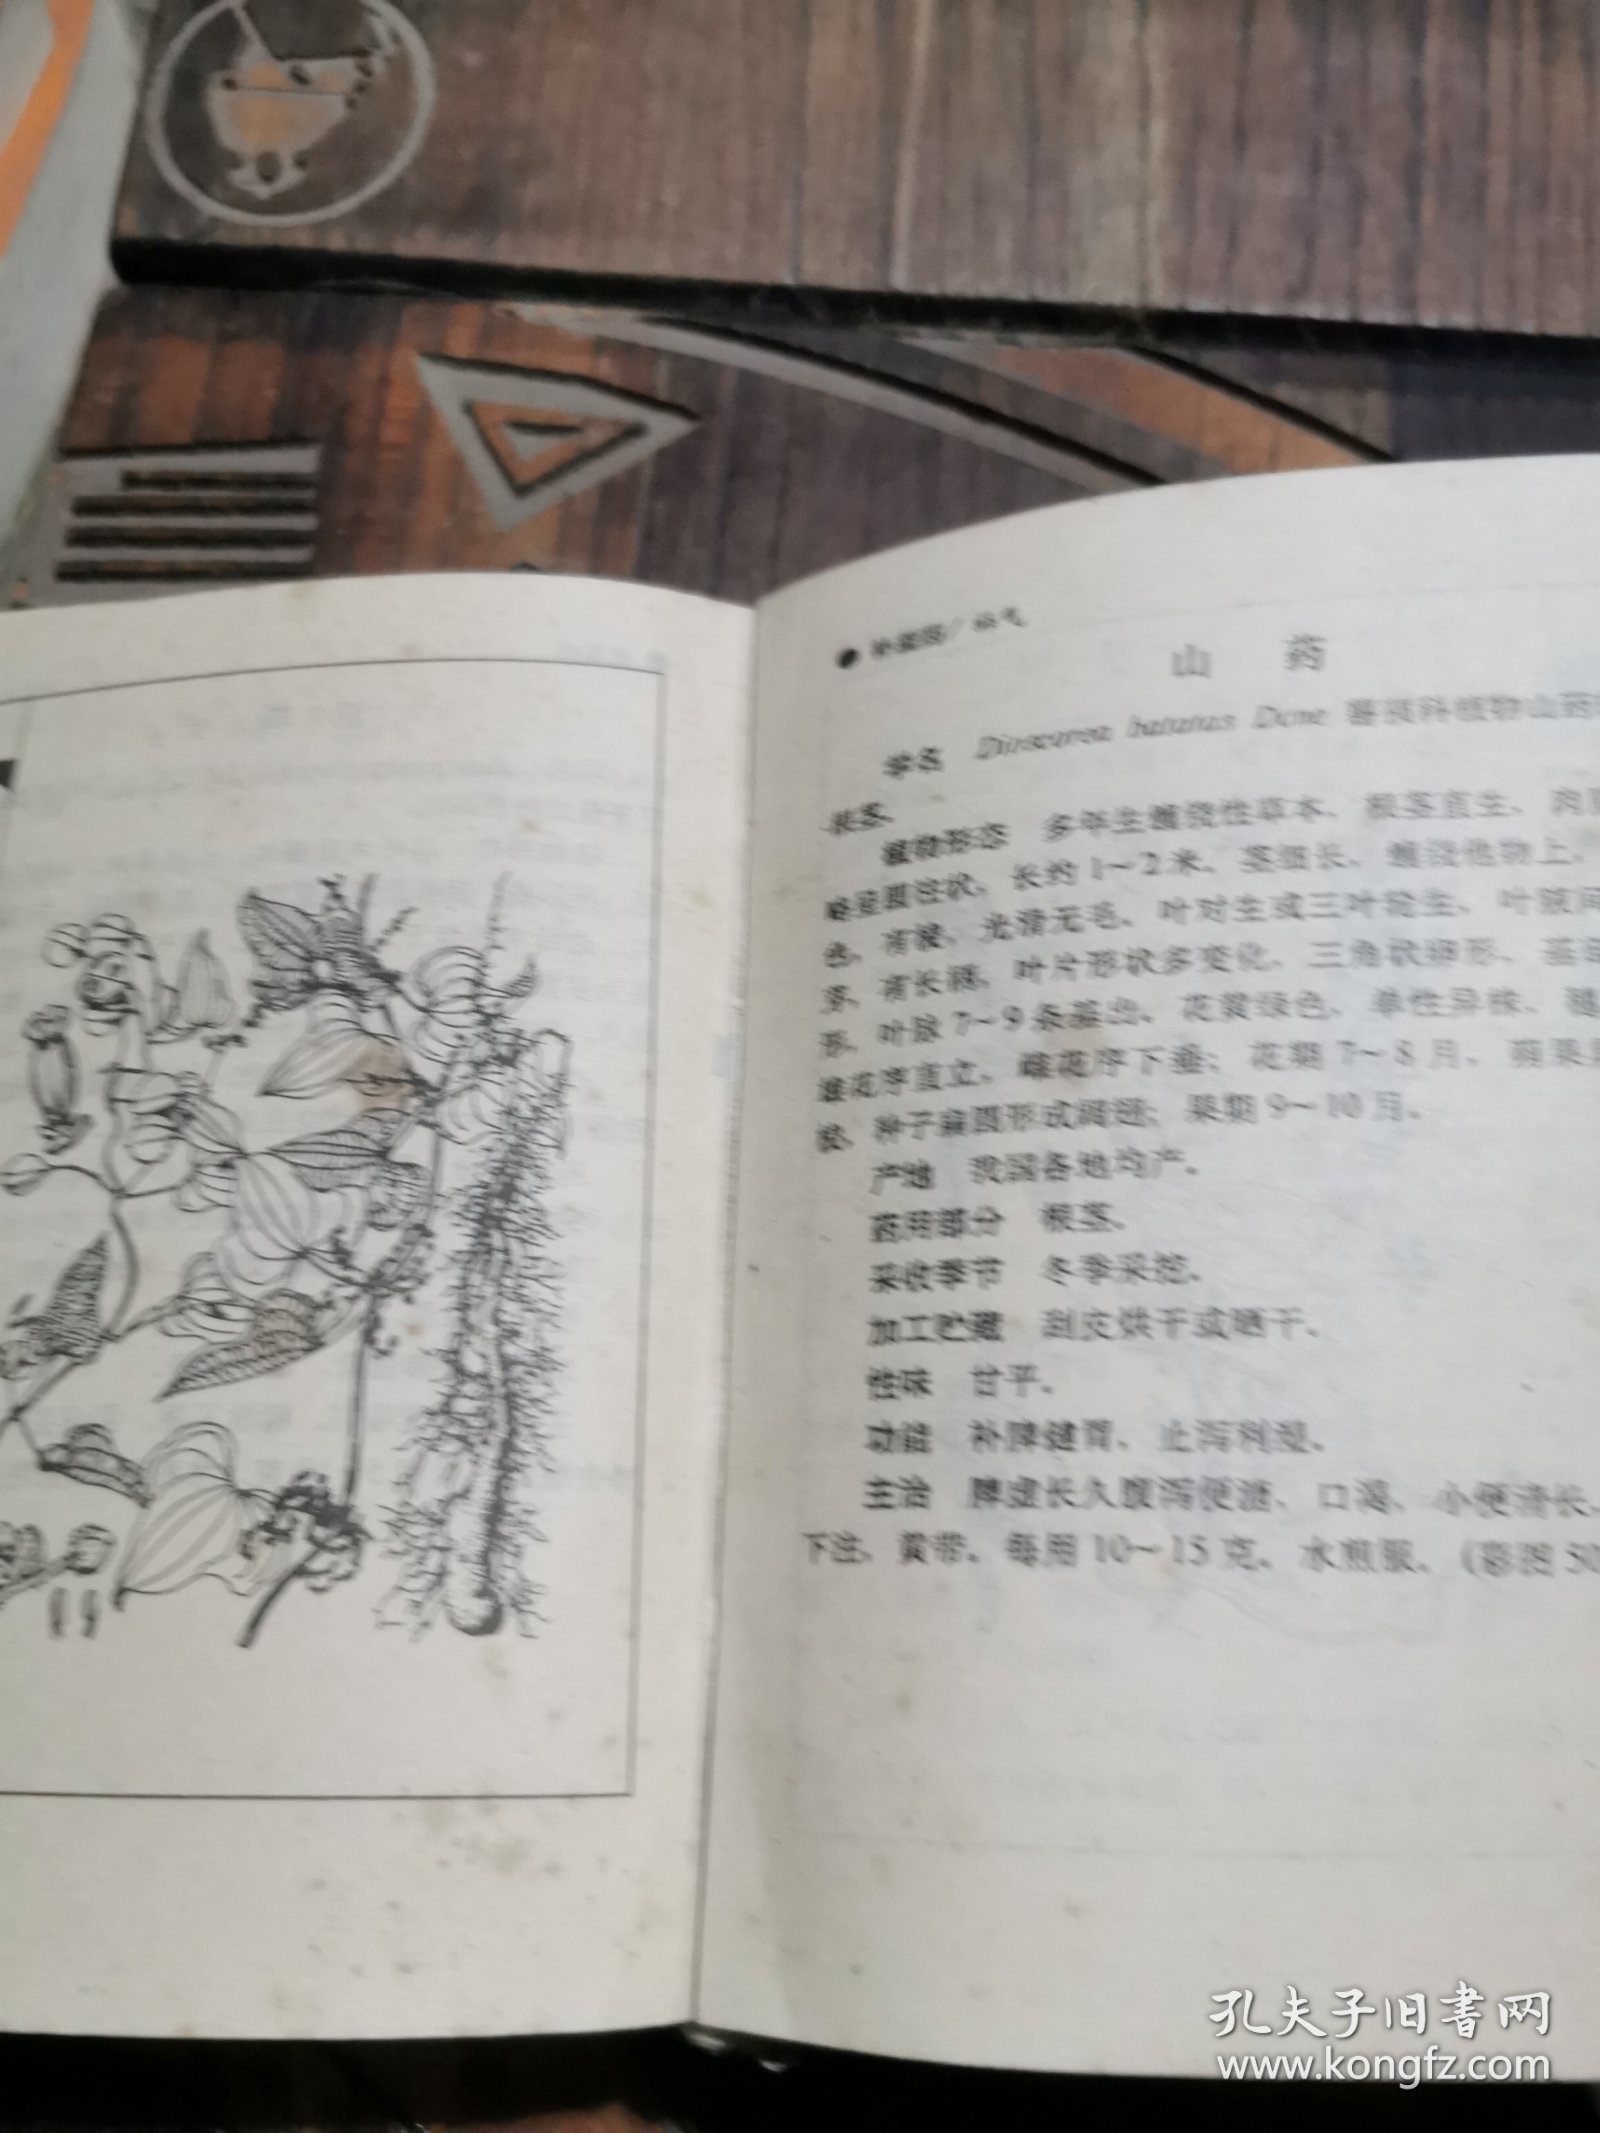 山 药
学名 Dioscorea batatas Dcne 薯蓣科植物山药
根茎。
植物形态 多年生缠绕性草本，根茎直生，肉
略呈圆柱状，长约1～2米。茎细长，缠绕他物上，
色，有棱，光滑无毛。叶对生或三叶轮生，叶腋间
芽，有长柄，叶片形状多变化，三角状卵形，基
形，叶脉7～9条基出。花黄绿色，单性异株，穗
雄花序直立，雌花序下垂；花期7～8月。蒴果
棱，种子扁圆形或阔翅；果期9～10月。
产地 我国各地均产。
药用部分 根茎。
采收季节 冬季采挖。
加工贮藏 刮皮烘干或晒干。
性味 甘平。
功能 补脾健胃、止泻利湿。
主治 脾虚长久腹泻便溏、口渴、小便清长、
下注，黄带。每用10～15克，水煎服。(彩图50
孔夫子旧书网
www.kongfz.com